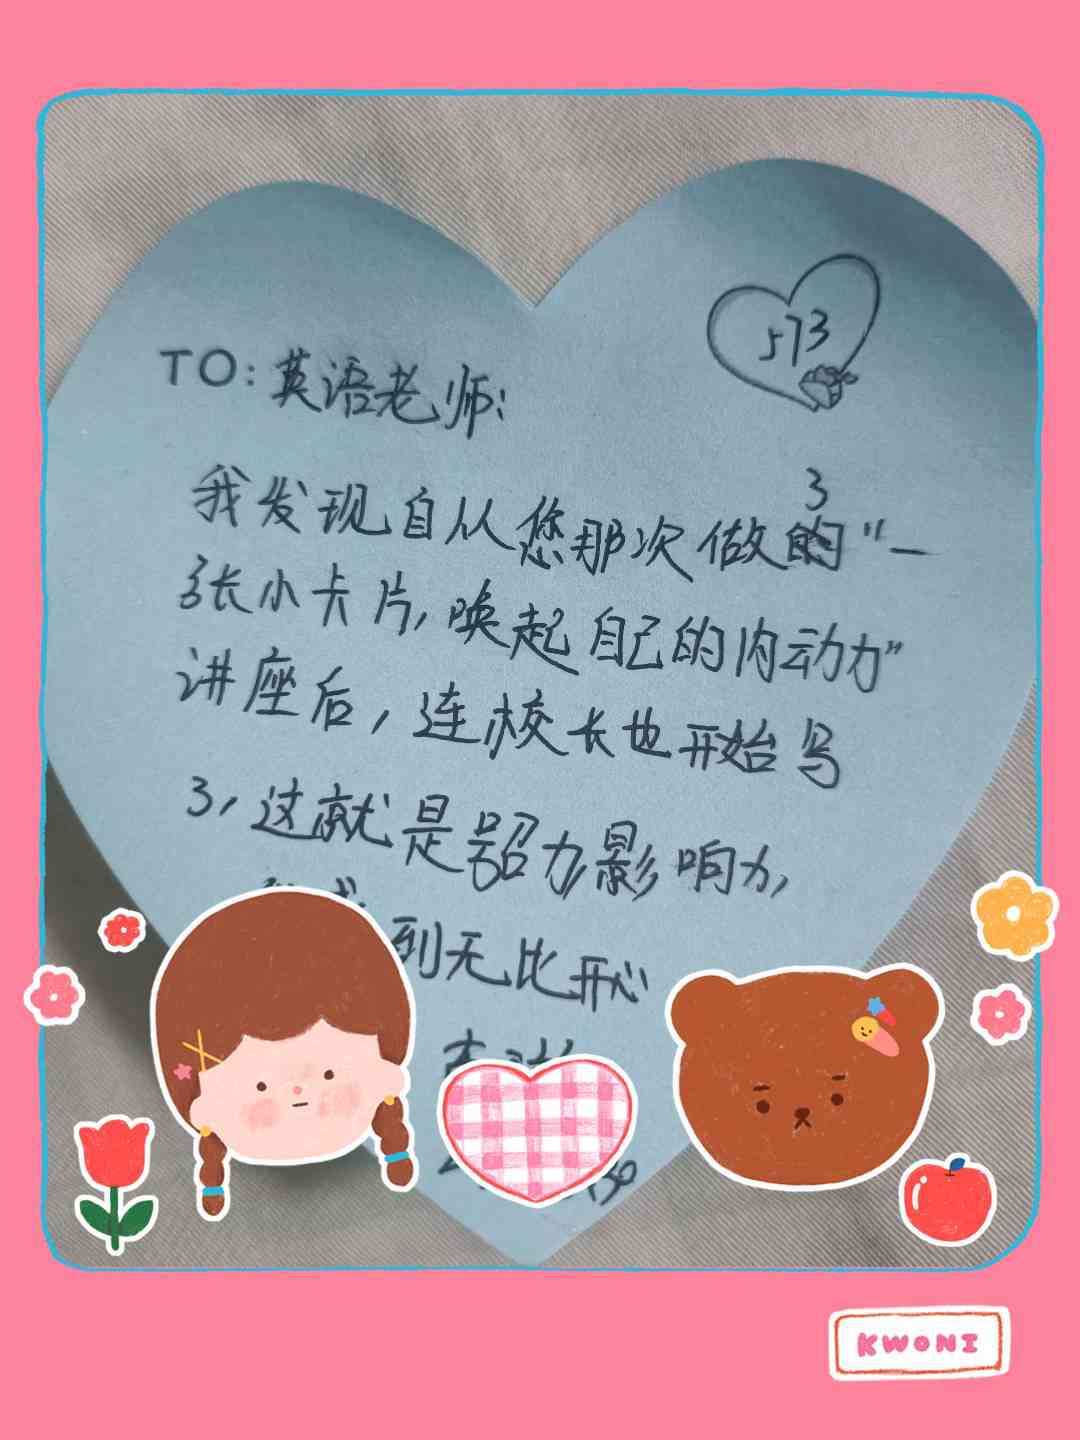 573
TO: 英语老师:
了
我发现自从您那次做的“一
张小卡片,唤起自己的内动力”
讲座后,连校长也开始写
了,这就是号召力影响力,
到无比开心
KWONI